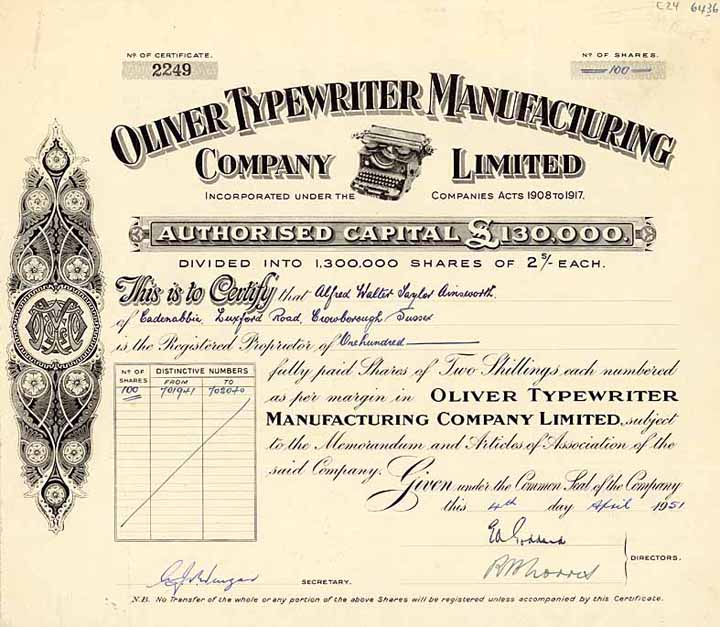 C24 6436
Nº OF CERTIFICATE.
2249
Nº OF SHARES.
100
OLIVER TYPEWRITER MANUFACTURING
COMPANY LIMITED
INCORPORATED UNDER THE COMPANIES ACTS 1908 TO 1917.
AUTHORISED CAPITAL £130,000.
DIVIDED INTO 1,300,000 SHARES OF 2s/- EACH.
This is to Certify that Alfred Walter Taylor Ainsworth.
of Cadenabbia, Luxford Road, Crowborough Sussex
is the Registered Proprietor of One hundred
fully paid Shares of Two Shillings each numbered
as per margin in OLIVER TYPEWRITER
MANUFACTURING COMPANY LIMITED, subject
to the Memorandum and Articles of Association of the
said Company. Given under the Common Seal of the Company
this 4th day April 1951
Nº OF SHARES DISTINCTIVE NUMBERS
FROM TO
100 701941 702040
DIRECTORS.
SECRETARY.
N.B. No Transfer of the whole or any portion of the above Shares will be registered unless accompanied by this Certificate.